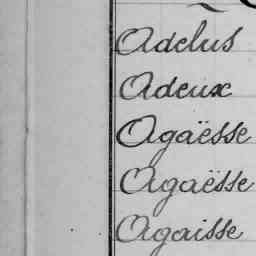 Adelus
Adeux
Agaësse
Agaësse
Agaisse